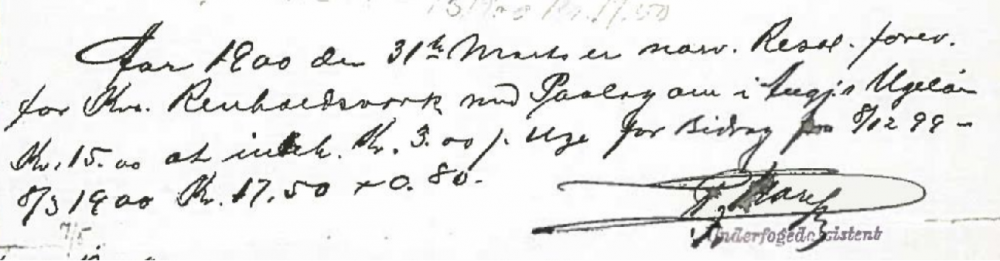 Aar 1900 den 31te Marts er nærv. Resol. forev.
for Kbs. Renholdsværk med Paalæg om i Ugeløn
Kr. 15.00 at indeh. Kr. 3.00 p. Uge for Bidrag fra 8/12 99 -
8/3 1900 Kr. 17.50 + 0.80.
Underfogedassistent
7/5